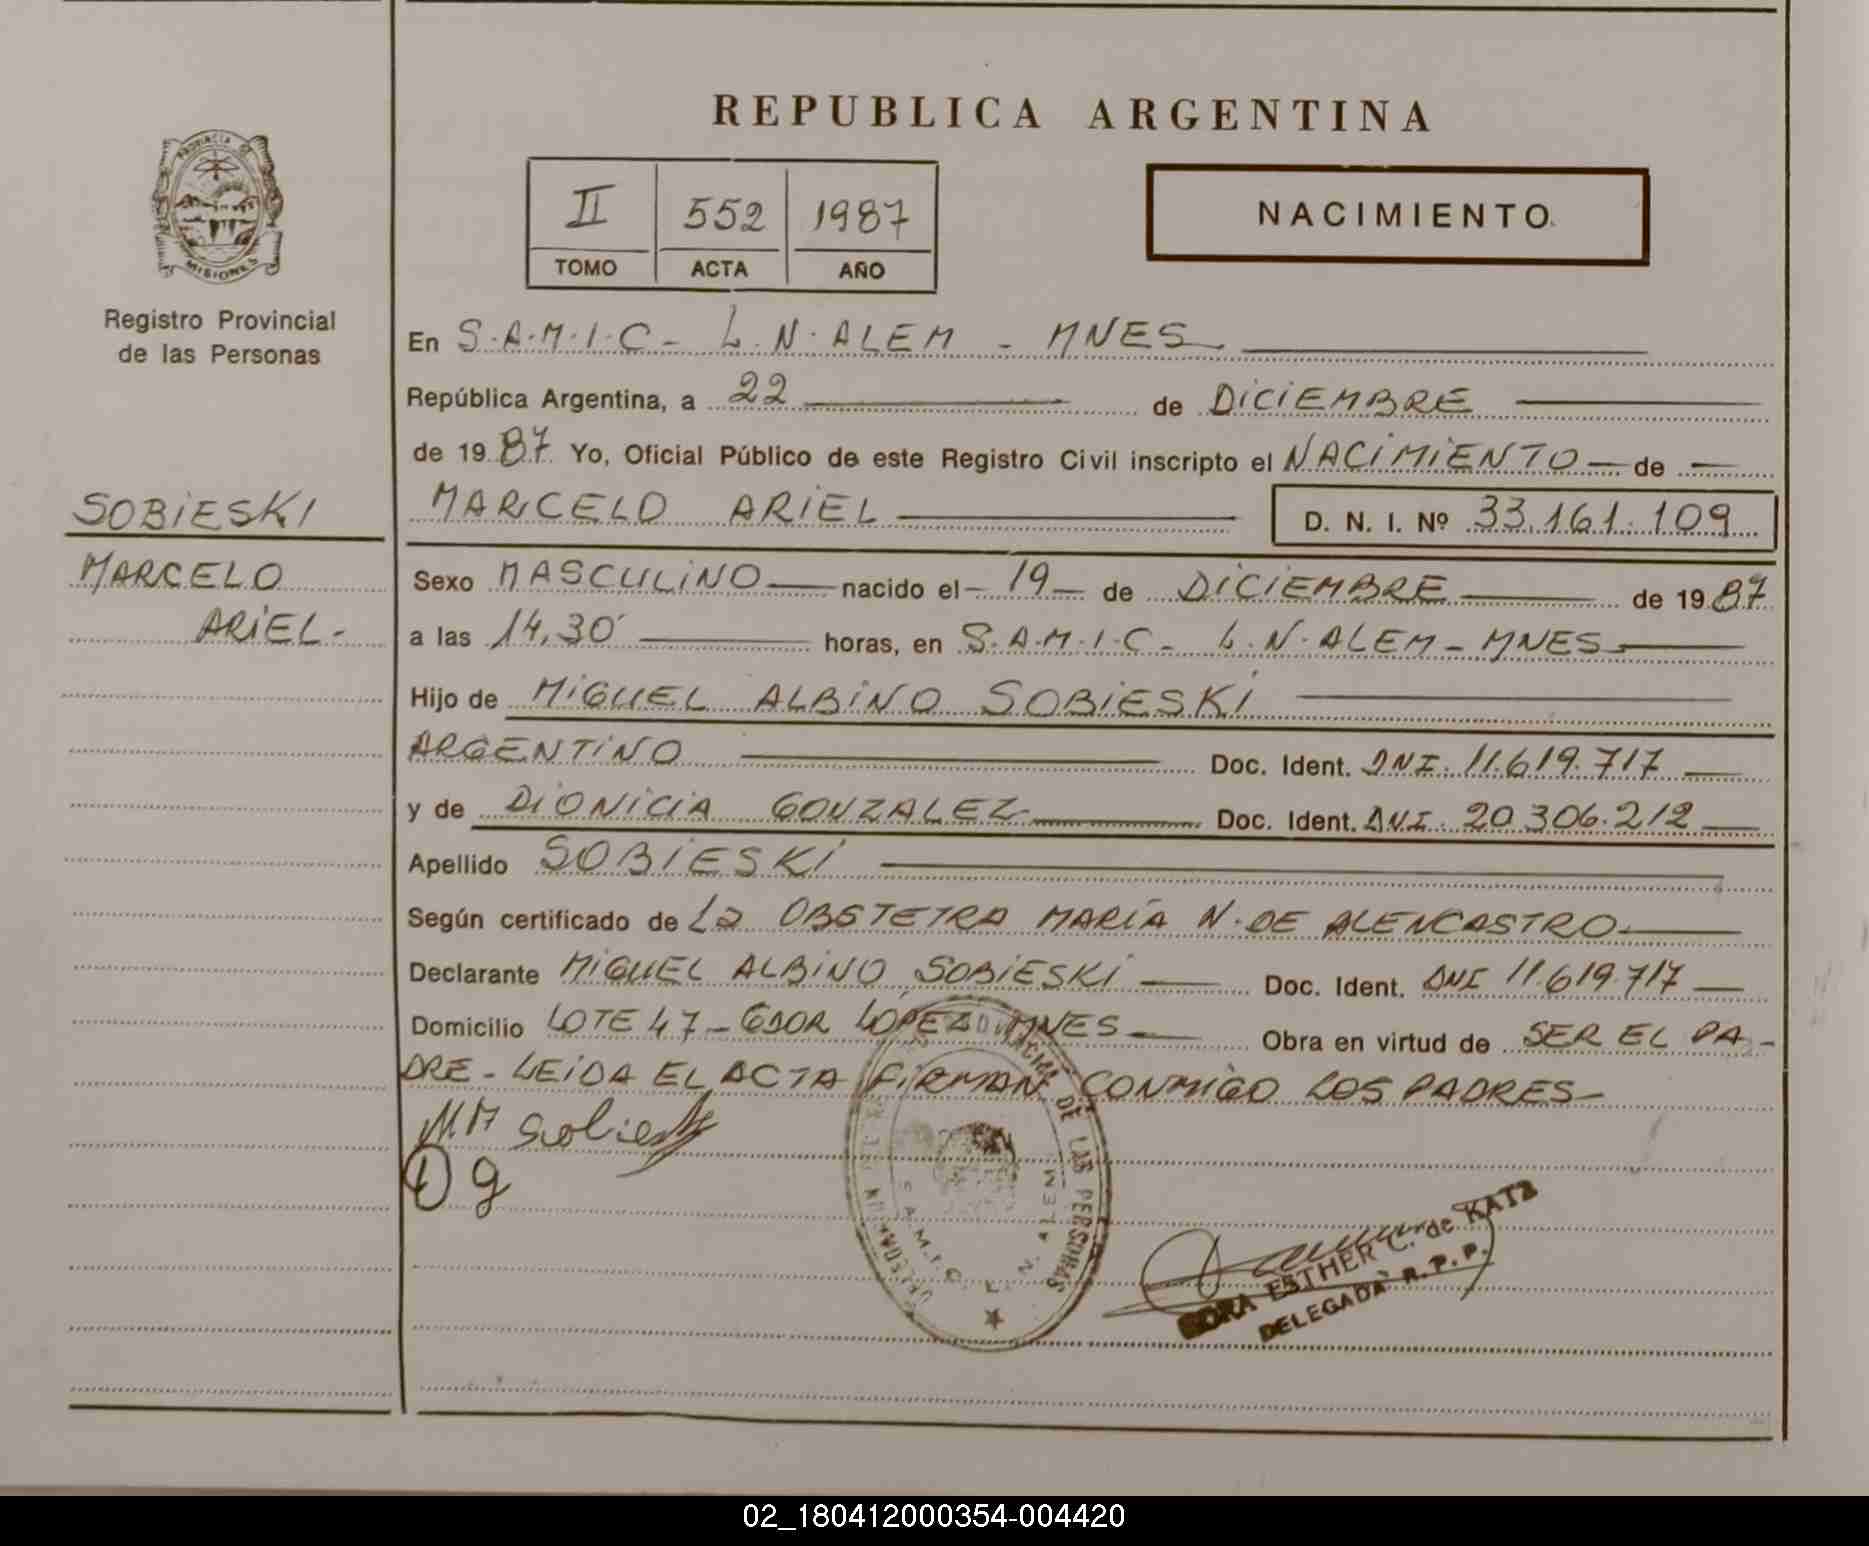 REPUBLICA ARGENTINA
PROVINCIA DE
MISIONES
Registro Provincial
de las Personas
II 552 1987
TOMO ACTA AÑO
NACIMIENTO
En S.A.M.I.C - L.N.ALEM - MNES
República Argentina, a 22 de DICIEMBRE
de 1987 Yo, Oficial Público de este Registro Civil inscripto el NACIMIENTO de
SOBIESKI
MARCELO
ARIEL-
MARCELO ARIEL D. N. I. Nº 33.161.109
Sexo MASCULINO nacido el 19 de DICIEMBRE de 1987
a las 14,30 horas, en S.A.M.I.C - L.N.ALEM - MNES
Hijo de MIGUEL ALBINO SOBIESKI
ARGENTINO Doc. Ident. DNI. 11.619.717
y de DIONICIA GONZALEZ Doc. Ident. DNI. 20.306.212
Apellido SOBIESKI
Según certificado de La OBSTETRA MARÍA N. DE ALENCASTRO
Declarante MIGUEL ALBINO SOBIESKI Doc. Ident. DNI 11.619.717
Domicilio LOTE 47 - GDOR LÓPEZ MNES Obra en virtud de SER EL PA-
DRE - LEIDA EL ACTA FIRMAN CONMIGO LOS PADRES-
DE LAS PERSONAS
S.A.M.I.C. L.N. ALEM
ESTHER C. de KATZ
DELEGADA R.P.P.
02_180412000354-004420